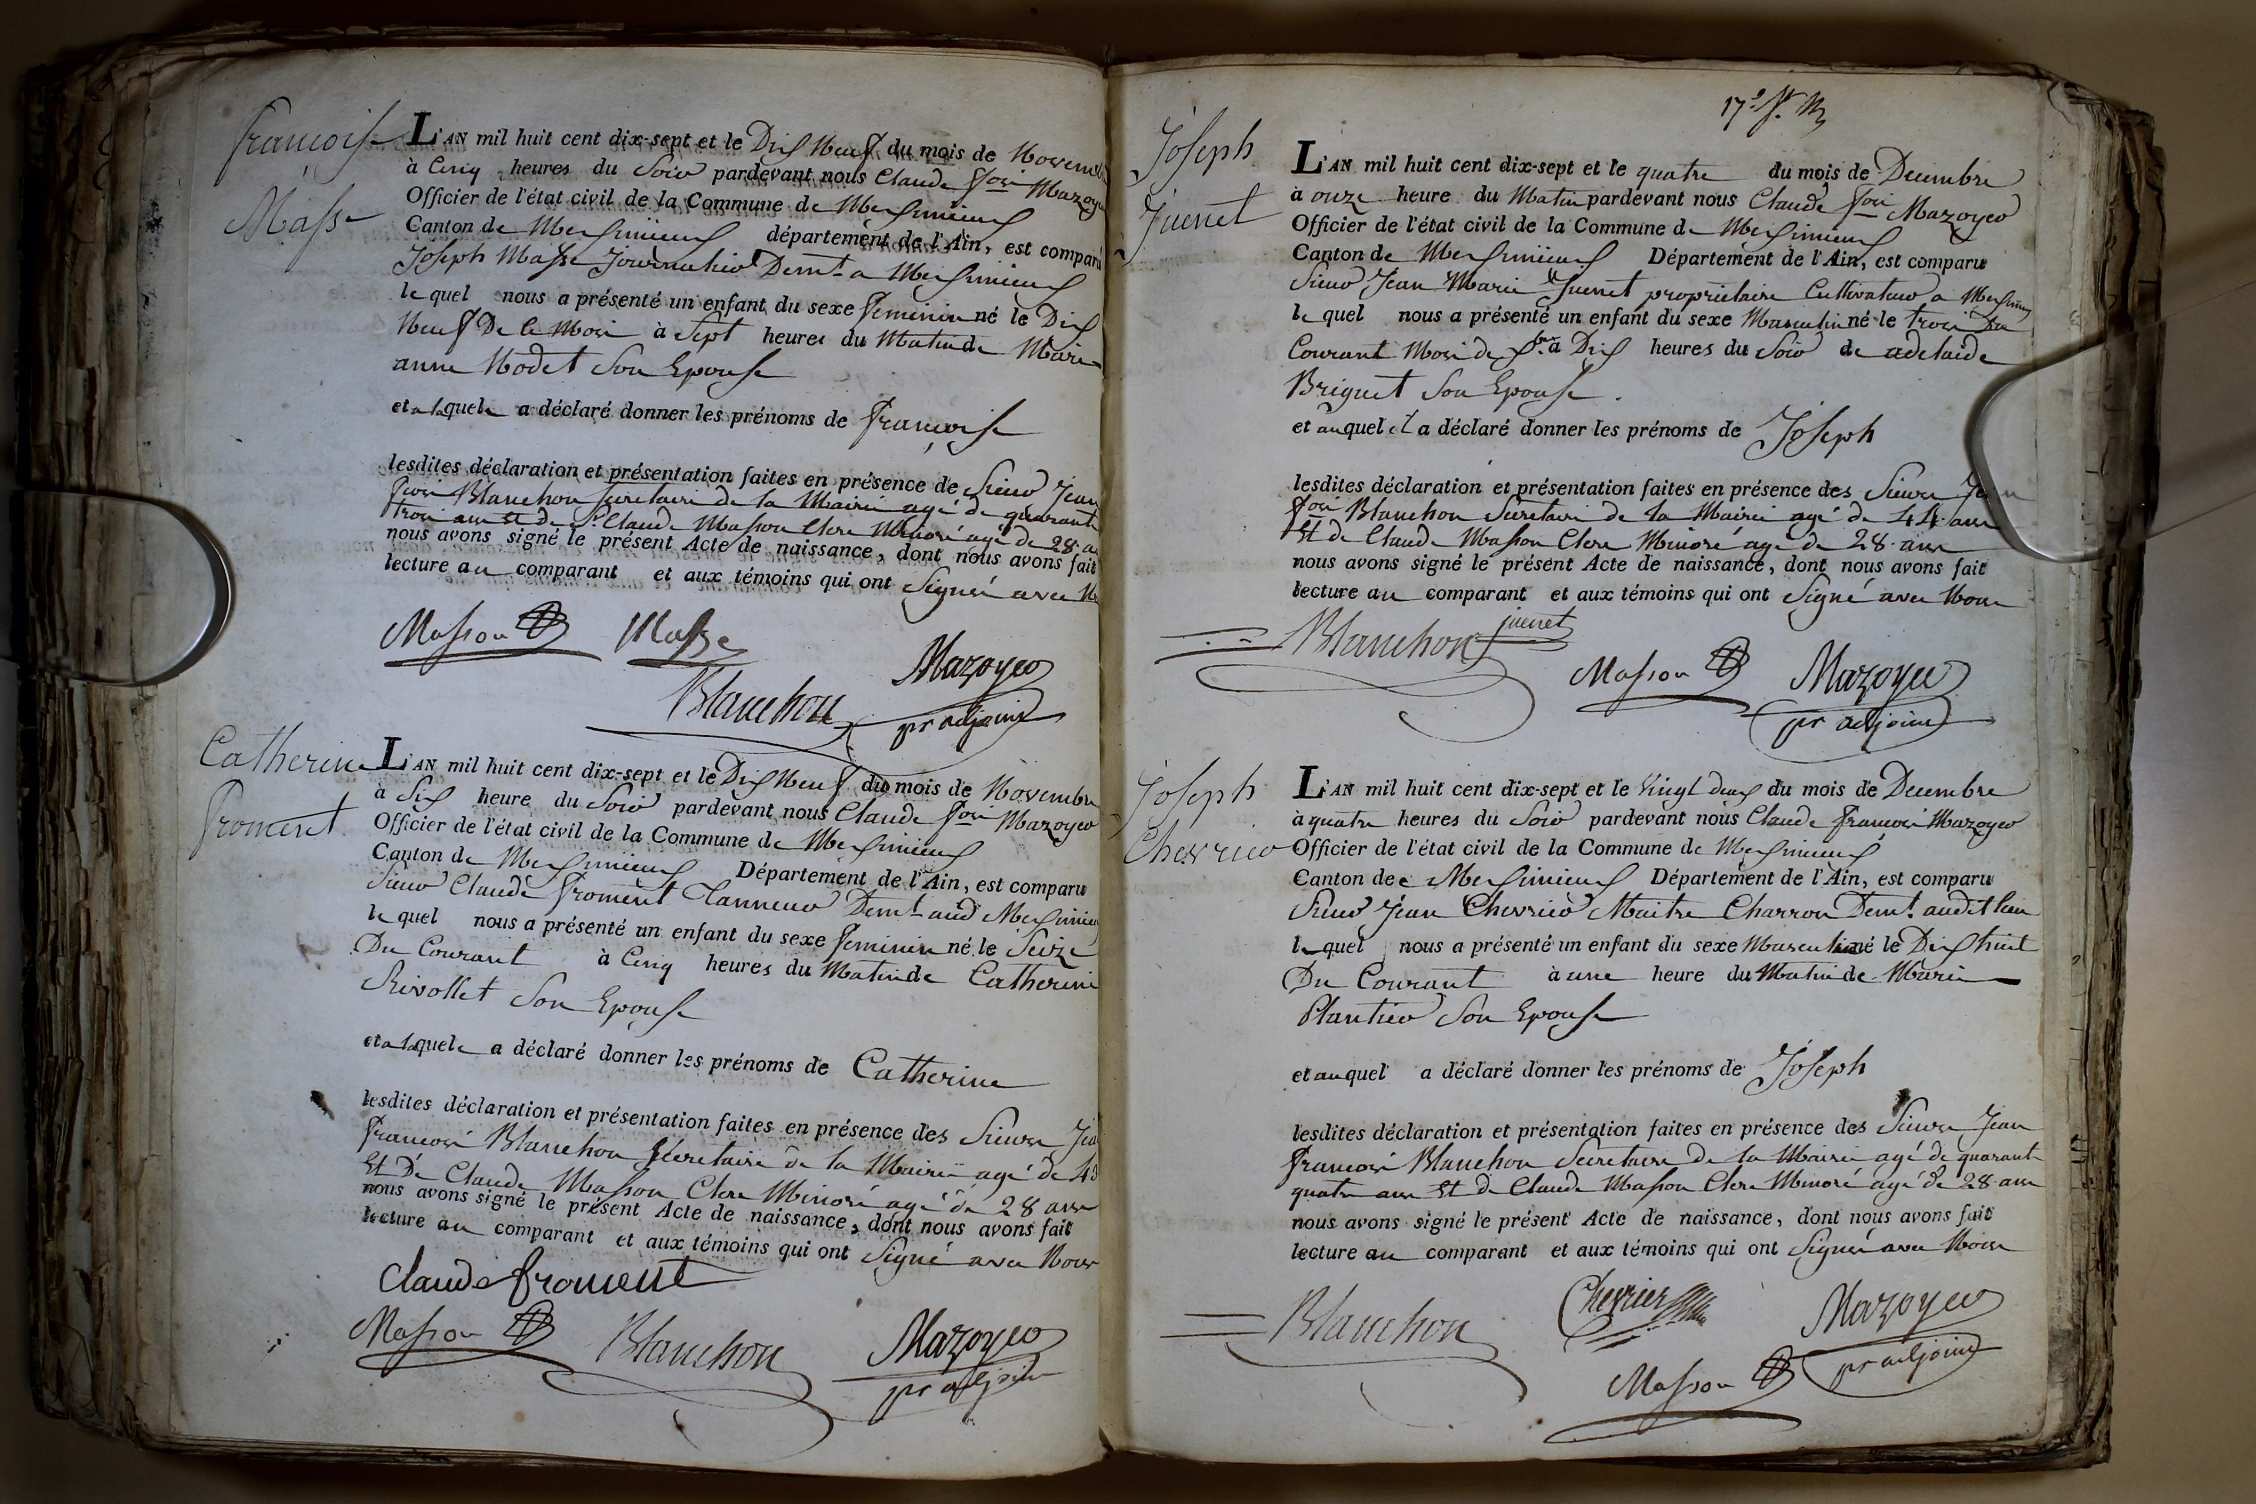 françoise
Masse
L'AN mil huit cent dix-sept et le Dix Neuf du mois de Novembre
à Cinq heures du Soir pardevant nous Claude fçois Mazoyer
Officier de l'état civil de la Commune de Meximieux
Canton de Meximieux département de l'Ain, est comparu
Joseph Masse Journalier Demt a Meximieux
le quel nous a présenté un enfant du sexe feminin né le Dix
Neuf De ce Mois à Sept heures du Matin de Marie
anne Nodet Son Epouse
et a laquele a déclaré donner les prénoms de françoise
lesdites déclaration et présentation faites en présence de Sieur Jean
fçois Blanchon Secretaire de la Mairie agé de quarante
trois ans Et de Sr Claude Masson Clerc Minoré agé de 28 a
nous avons signé le présent Acte de naissance, dont nous avons fait
lecture au comparant et aux témoins qui ont Signés avec N
Masson Masse
Mazoyer
Blanchon pr adjoint
Catherine
froment
L'AN mil huit cent dix-sept et le Dix Neuf du mois de Novembre
à Six heure du Soir pardevant nous Claude fçois Mazoyer
Officier de l'état civil de la Commune de Meximieux
Canton de Meximieux Département de l'Ain, est comparu
Sieur Claude froment Tanneur Demt aud Meximieux
le quel nous a présenté un enfant du sexe feminin né le Seize
Du Courant à Cinq heures du Matin de Catherine
Rivollet Son Epouse
et a laquele a déclaré donner les prénoms de Catherine
lesdites déclaration et présentation faites en présence des Sieurs Jea
françois Blanchon Sécretaire de la Mairie agé de 43
Et De Claude Masson Clerc Minoré agé de 28 ans
nous avons signé le présent Acte de naissance, dont nous avons fait
lecture au comparant et aux témoins qui ont Signé avec Nous
Claude froment
Masson Blanchon Mazoyer
pr adjoint
Joseph
Juenet
L'AN mil huit cent dix-sept et le quatre du mois de Decembre
à onze heure du Matin pardevant nous Claude fçois Mazoyer
Officier de l'état civil de la Commune de Meximieux
Canton de Meximieux Département de l'Ain, est comparu
Sieur Jean Marie Juenet propriétaire Cultivateur a Meximieux
le quel nous a présenté un enfant du sexe Masculin né le trois du
Courant Mois de Xbre à Dix heures du Soir de adelaide
Briguet Son Epouse.
et auquel il a déclaré donner les prénoms de Joseph
lesdites déclaration et présentation faites en présence des Sieurs Jean
fçois Blanchon Secretaire de la Mairie agé de 44 ans
Et de Claude Masson Clerc Minoré agé de 28 ans
nous avons signé le présent Acte de naissance, dont nous avons fait
lecture au comparant et aux témoins qui ont Signé avec Nous
Blanchon juenet
Masson Mazoyer
pr adjoint
Joseph
Chevrier
L'AN mil huit cent dix-sept et le Vingt deux du mois de Decembre
à quatre heures du Soir pardevant nous Claude françois Mazoyer
Officier de l'état civil de la Commune de Meximieux
Canton de Meximieux Département de l'Ain, est comparu
Sieur Jean Chevrier Maitre Charron Demt audit lieu
le quel nous a présenté un enfant du sexe Masculin né le Dix huit
Du Courant à une heure du Matin de Marie
Plantier Son Epouse
et auquel a déclaré donner les prénoms de Joseph
lesdites déclaration et présentation faites en présence des Sieurs Jean
françois Blanchon Secretaire de la Mairie agé de quarante
quatre ans Et de Claude Masson Clerc Minoré agé de 28 ans
nous avons signé le présent Acte de naissance, dont nous avons fait
lecture au comparant et aux témoins qui ont Signés avec Nous
Blanchon Chevrier Mazoyer
Masson pr adjoint